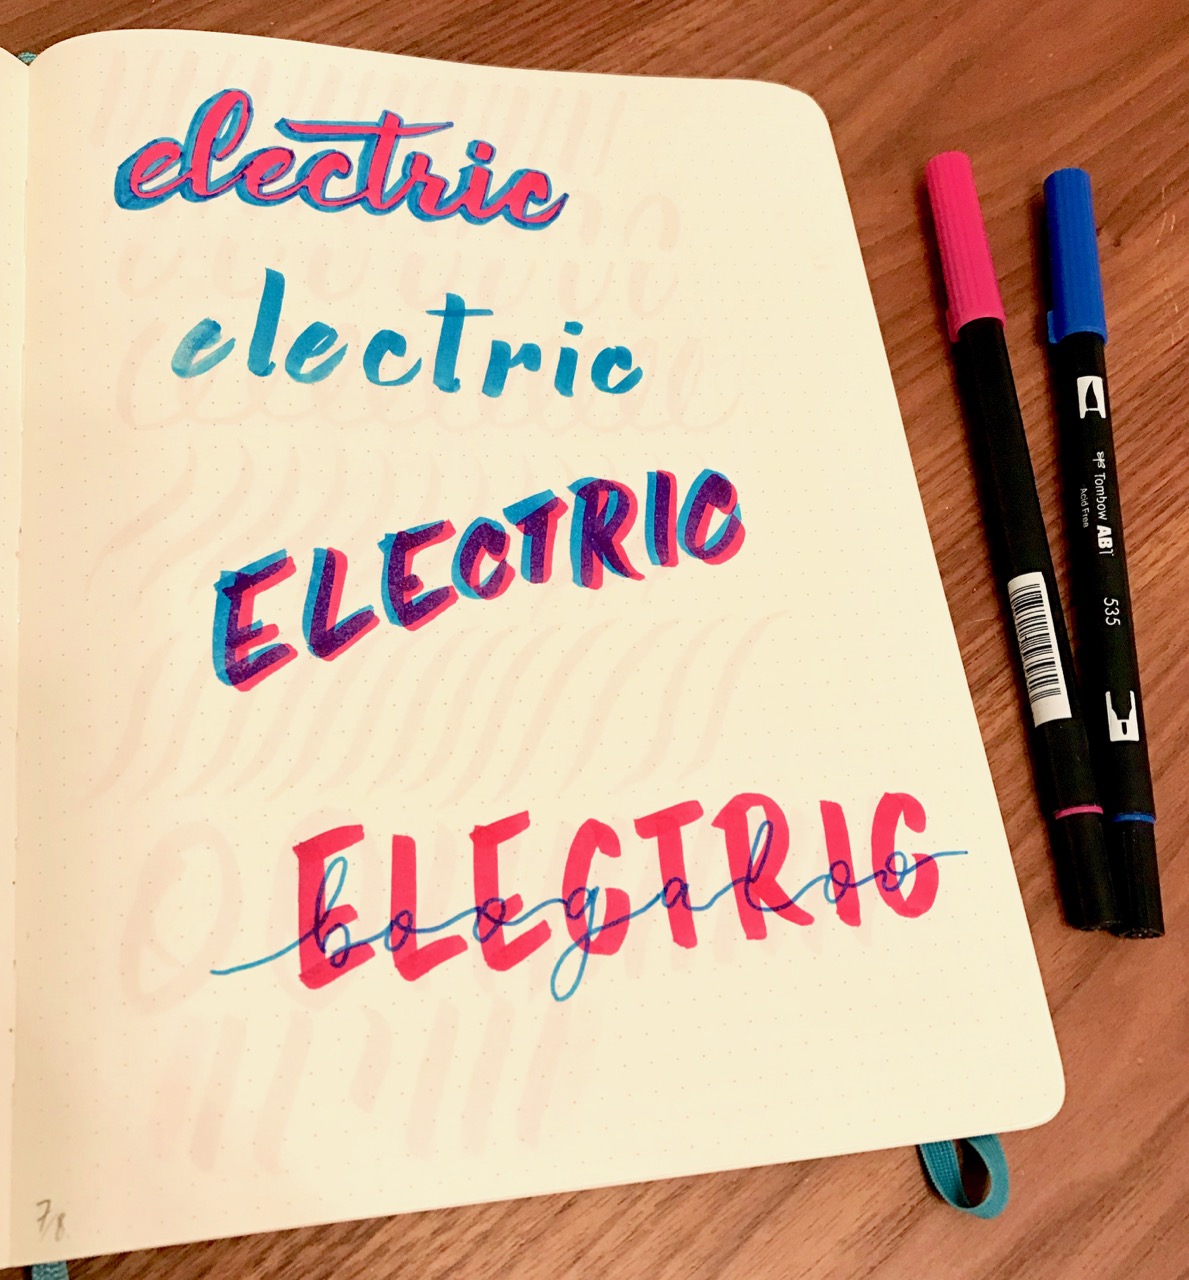 electric
electric
ELECTRIC
ELECTRIC
boogaloo
7/8
Tombow ABT
Acid Free
535